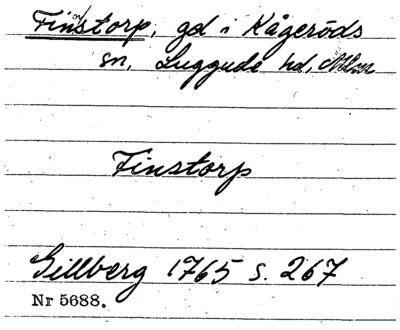 Finstorp, gd i Kågeröds
sn, Luggude hd, Mlm
Finstorp
Gillberg 1765 s. 267
Nr 5688.